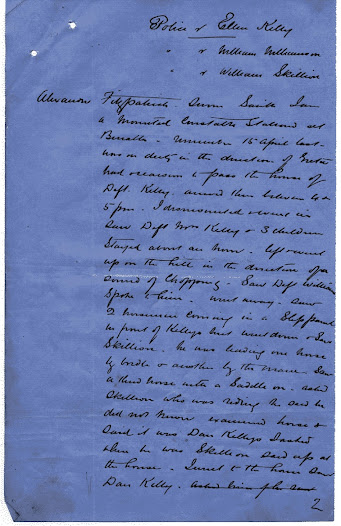 Police v Ellen Kelly
" v William Williamson
" v William Skillion
Alexander Fitzpatrick Sworn Saith I am
a Mounted Constable Stationed at
Benalla - remember 15 April last
was on duty in the direction of Greta
had occasion to pass the house of
Deft. Kelly. arrived there between 4 &
5 pm. I dismounted & went in
saw Deft Mrs Kelly & 3 children
Stayed about an hour. left & went
up on the hill in the direction of a
sound of Chopping. Saw Deft William
Spoke to him. went away. saw
2 horsemen coming in a Slippanel
in front of Kellys hut went down & saw
Skillion. he was leading one horse
by bridle & another by the mane saw
a third horse with a Saddle on. asked
Skillion who was riding he said he
did not know examined horse &
said it was Dan Kellys I asked
where he was Skillion said up at
the house. I went to the house saw
Dan Kelly. asked him
2